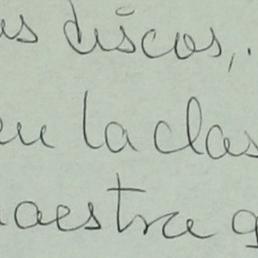 us discos,.
en la clas
naestra q